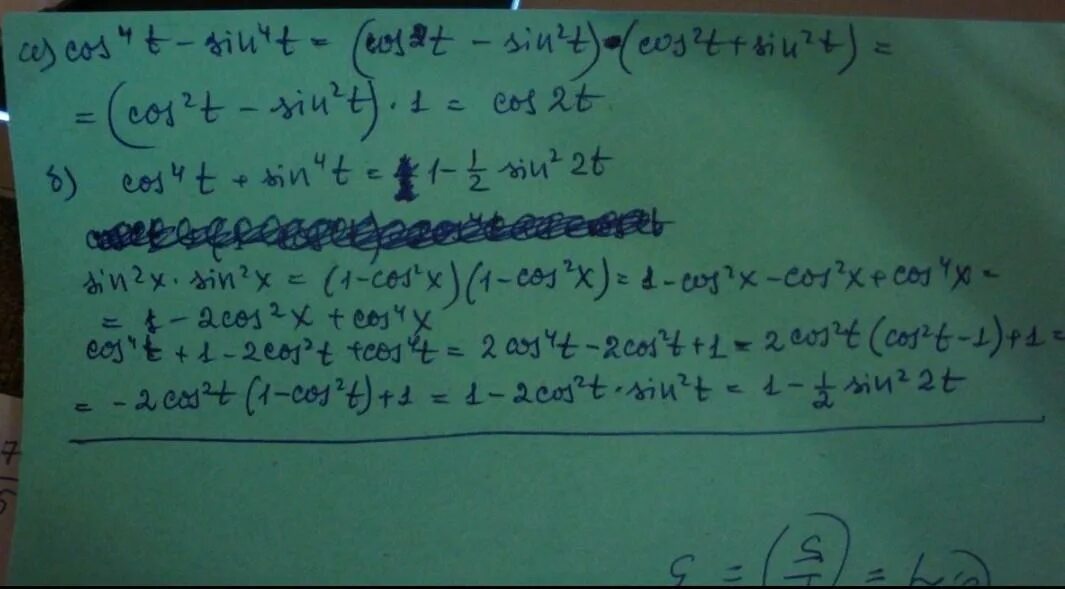 а) cos⁴t − sin⁴t = (cos²t − sin²t)·(cos²t + sin²t) =
= (cos²t − sin²t)·1 = cos 2t
б) cos⁴t + sin⁴t = 1 − 1/2 sin² 2t
sin²x · sin²x = (1−cos²x)(1−cos²x) = 1 − cos²x − cos²x + cos⁴x =
= 1 − 2cos²x + cos⁴x
cos⁴t + 1 − 2cos²t + cos⁴t = 2cos⁴t − 2cos²t + 1 = 2cos²t (cos²t − 1) + 1 =
= −2cos²t (1−cos²t) + 1 = 1 − 2cos²t · sin²t = 1 − 1/2 sin² 2t